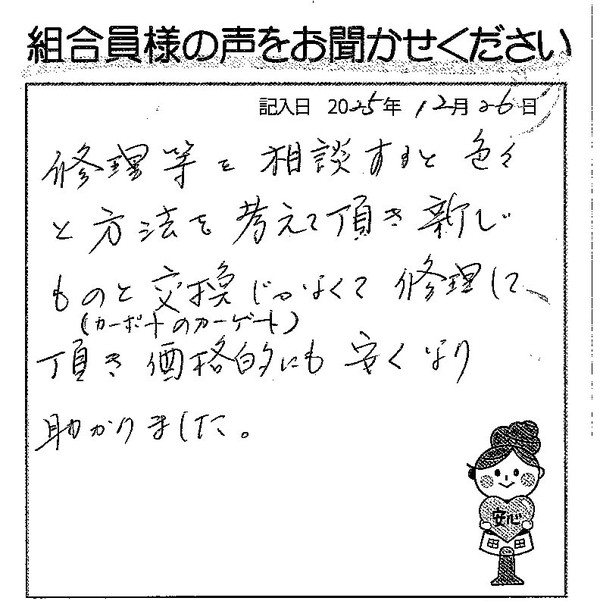 組合員様の声をお聞かせください
記入日 2025年 12月 26日
修理等を相談すると色々
と方法を考えて頂き新しい
ものと交換じゃなくて修理して
(カーポートのカーゲート)
頂き価格的にも安くなり
助かりました。
安心